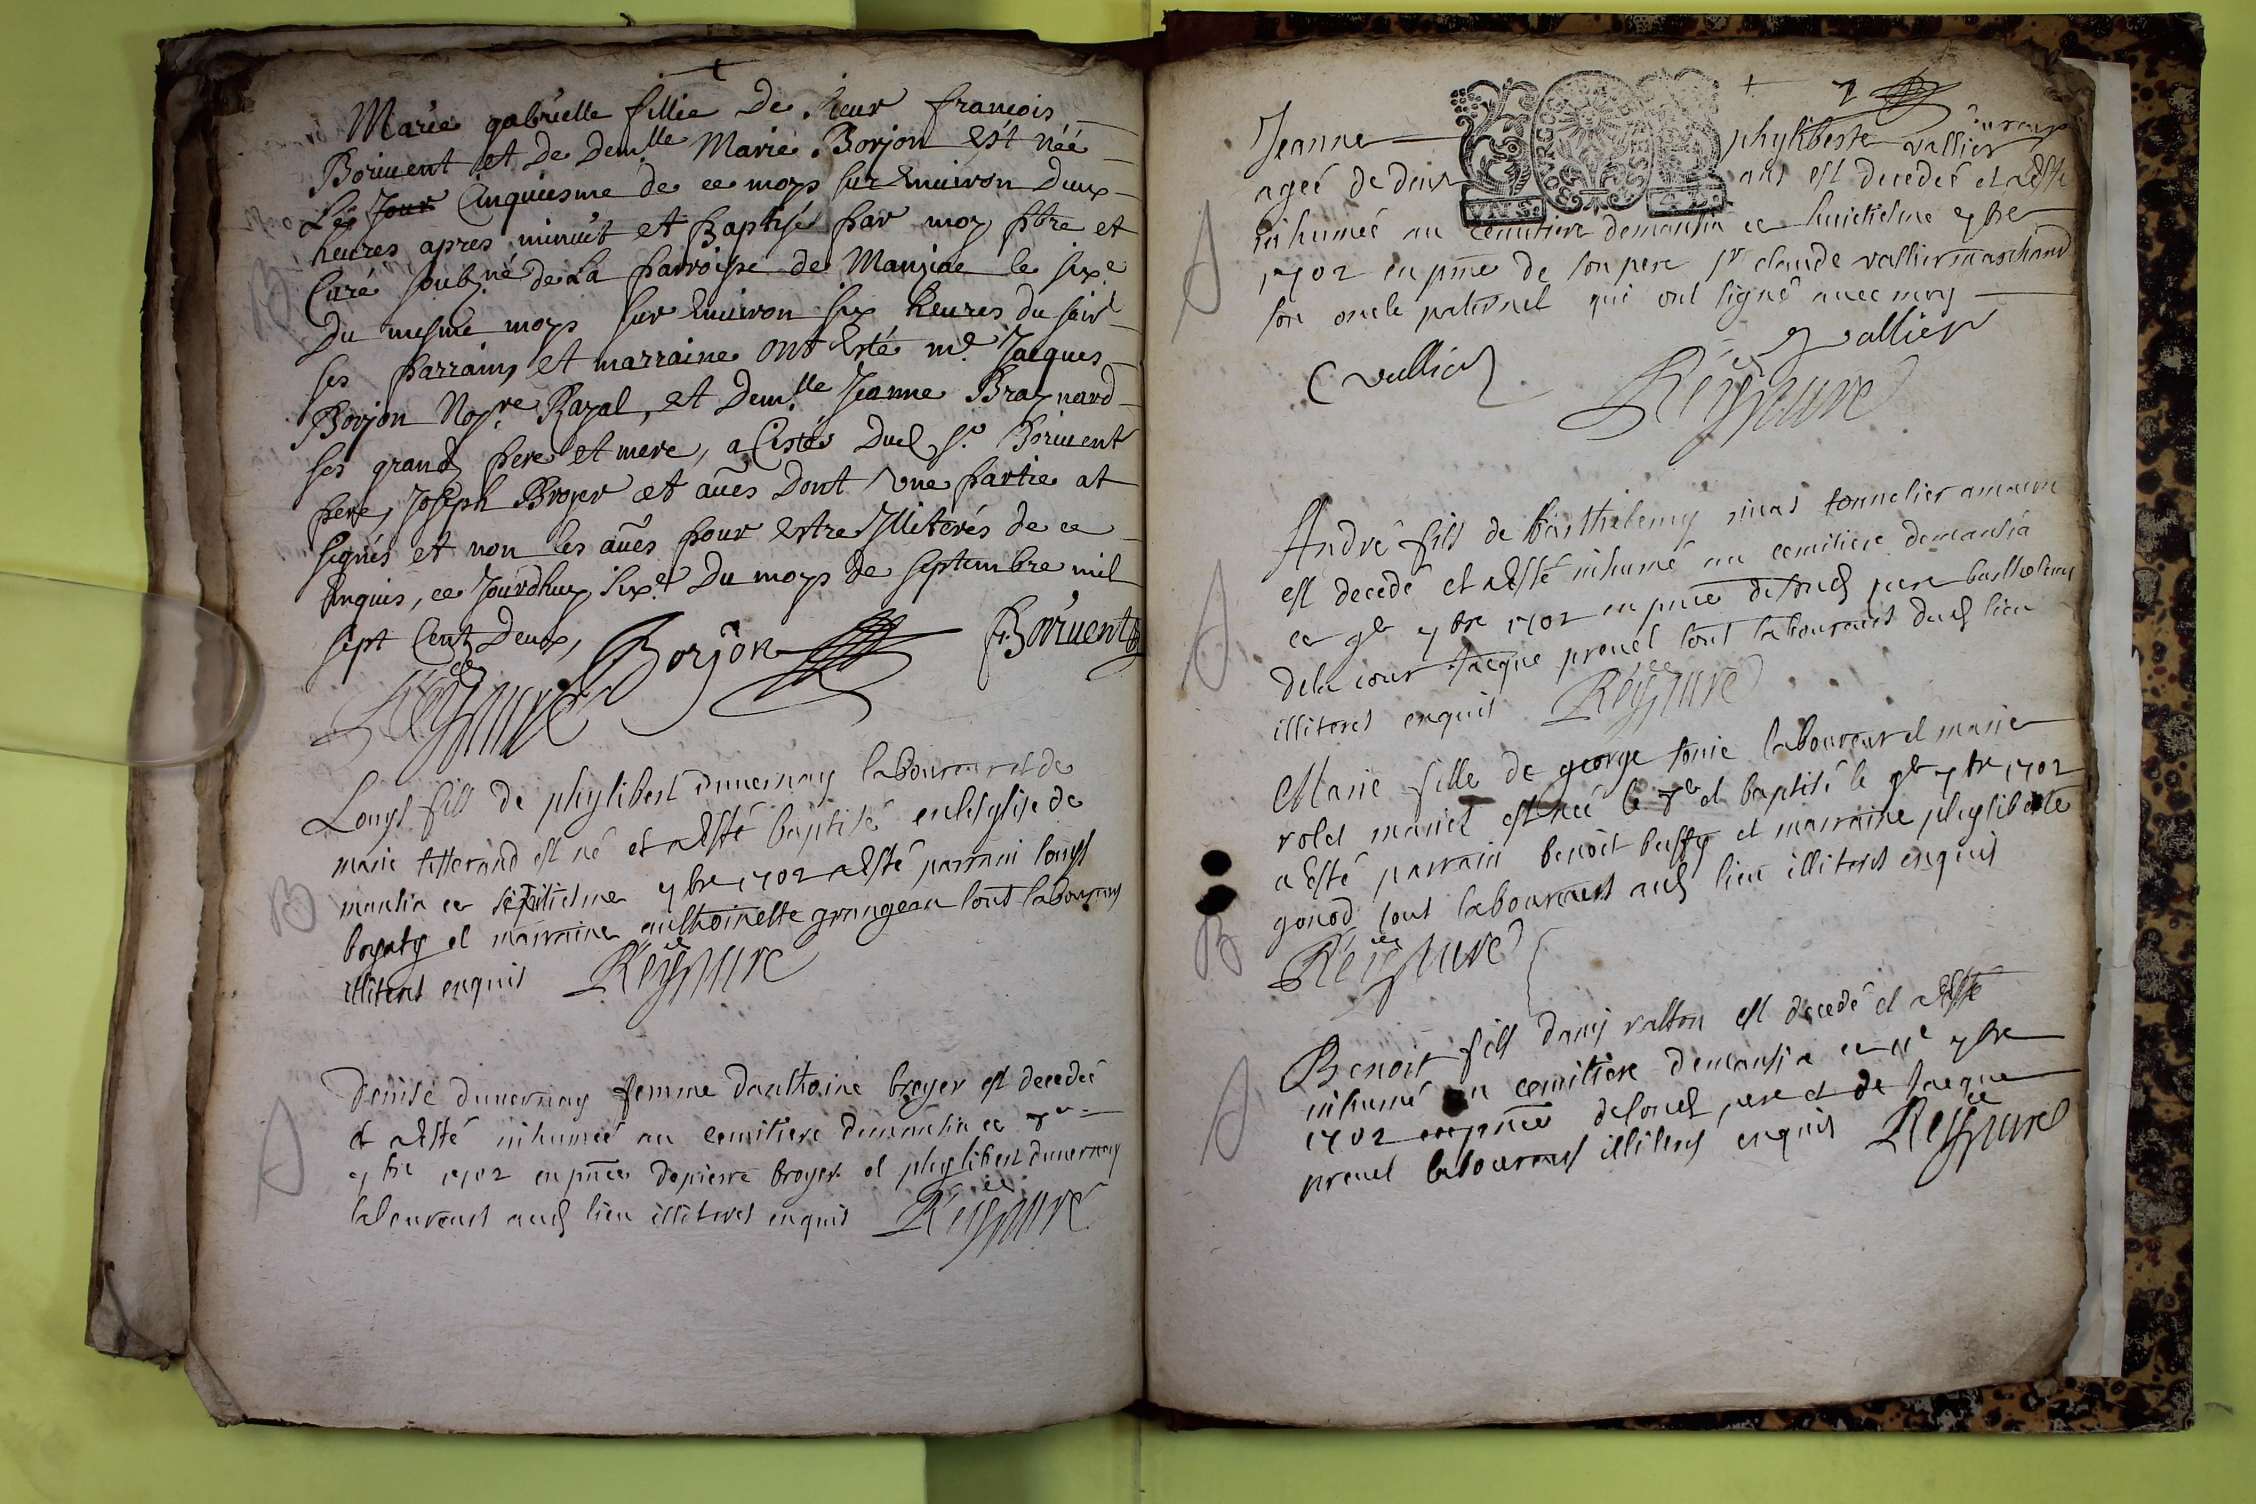 Marie gabrielle fillie De sieur francois
Boriuent et De Dem.lle Marie Borjon est née
Les Jour Cinquiesme de ce moys sur Enuiron Deux
heures apres minuit et Baptisé par moy pbre et
Curé soubz.né de La parroisse de Manziac le six.e
Du mesme moys sur Enuiron six heures du soir
ses parrain, et marraine ont Esté m.e Jacques
Borjon No.re Royal, et Dem.lle Jeanne Braynard
ses grand pere et mere, a Cistés Dud s.r Boriuent
pere, Joseph Broyer et aues Dont Vne partie at
signés et non les aues pour Estre Jlliterés de ce
Enquis, ce Jourdhuy six.e Du moys de septembre mil
sept Cent Deux,
Borjon
Boriuent
Reyssure
Louys fils de phylibert duuernay laboureur et de
marie tetterand est né et a Esté baptisé en lesglise de
mansia ce septiesme 7bre 1702 a Esté parrain louys
et marraine anthoinette grangean tout laboureurs
illiteres enquis Reyssure
Denise duuernay femme danthoine broyer est decedeé
et a Esté inhumeé au cemitiere demansia ce
7bre 1702 en pnce de pierre broyer et phylibert duuernay
laboureurs aud lieu illiteres enquis Reyssure
7
Jeanne phyliberte vallier
ageé de deux ans est decedeé et a Esté
inhumeé au cemitiere demansia ce huictiesme 7bre
1702 en pnce de son pere sr claude vallier marchand
son oncle paternel qui ont signé auec moy
C vallier vallier
Reyssure
André fils de barthelemy tonnelier
est decedé et a Esté inhumé au cemitiere demansia
ce 9e 7bre 1702 en pnce de sond pere barthelemy
dela cour Jacque preuel tout laboureurs dud lieu
illiteres enquis Reyssure
Marie fille de george laboureur et marie
est neé le et baptisé le 9e 7bre 1702
a Esté parrain benoit buffy et marraine phyliberte
gonod tout laboureurs aud lieu illiteres enquis
Reyssure
Benoit fils ratton est decedé et a Esté
inhumé au cemitiere demansia ce 7bre
1702 en pnce de sond pere et de Jacque
preuel laboureurs illiteres enquis Reyssure